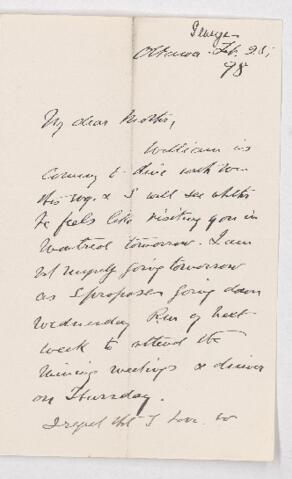 George
Ottawa. Feb. 25,
98
My dear Mother,
William is
coming to dine with me
this evg. & I will see whether
he feels like visiting you in
Montreal tomorrow. I am
not myself going tomorrow
as I propose going down
Wednesday
week to attend the
Mining meetings & dinner
on Thursday.
I regret that I have to